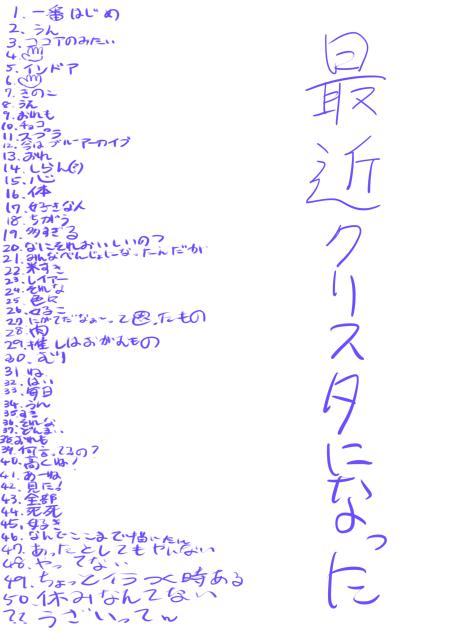 1. 一番はじめ
2. うん
3. ココアのみたい
4.
5. インドア
6.
7. きのこ
8. うん
9. おれも
10. チョコ
11. スプラ
12. 今はブルーアーカイブ
13. おれ
14. しらん
15. 心
16. 体
17. 好きな人
18. ちがう
19. 多すぎる
20. なにそれおいしいの?
21. みんなべんじょし
22. 米すき
23. レイアー
24. それな
25. 色々
26.
27. にがてだなぁ〜って思ったもの
28. 肉
29. 推しはおがむもの
30. むり
31 ね
32. はい
33. 毎日
34. うん
35. すき
36. それな
37. どんまい
38. おれも
39. 何言ってるの?
40. 高くね!
41. あーね
42. 見た!
43. 全部
44. 死死
45. 好き
46. なんでここまで描いたん
47. あったとしてもヤバない
48. やってない
49. ちょっとイラつく時ある
50. 休みなんてない
?? うざいってん
最近クリスタになった